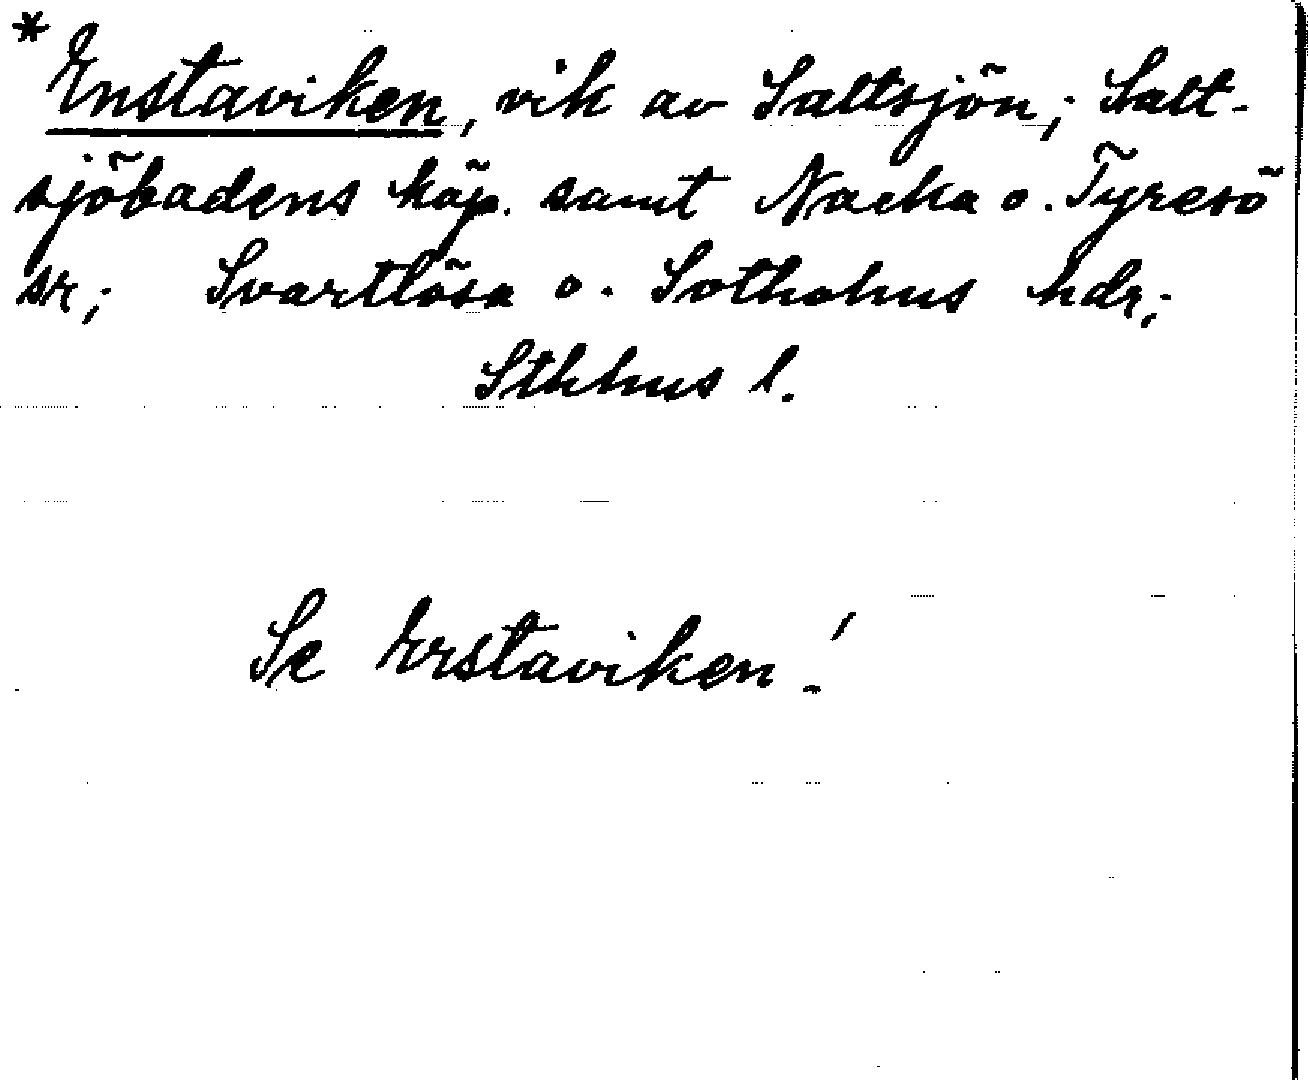 *Enstaviken, vik av Saltsjön; Salt-
sjöbadens köp. samt Nacka o. Tyresö
sr; Svartlösa o. Sotholms hdr;
Sthlms l.
Se Erstaviken!